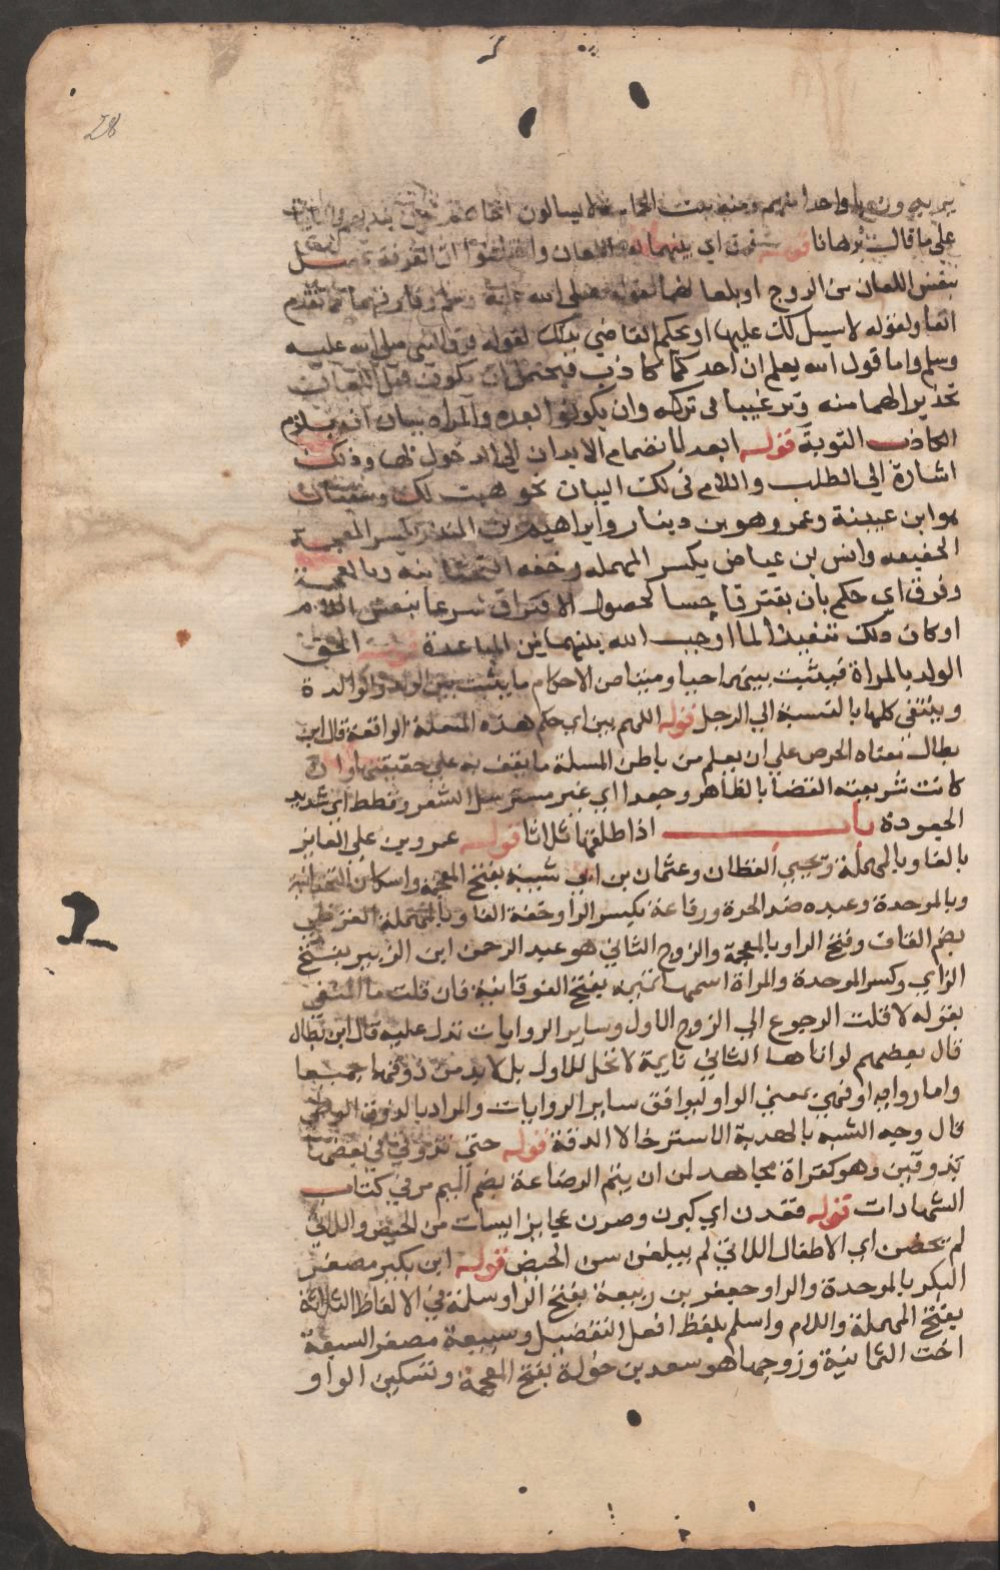 28
على ما قالت برهانا قوله اي بينهما اللعان وان الفرقة
بنفس اللعان من الزوج صلى الله عليه وسلم وفارقهما كما تقدم
انفا ولقوله لا سبيل لك عليها او بحكم القاضي بذلك لقوله فرق النبي صلى الله عليه
وسلم واما قول الله يعلم ان احدكما كاذب فيحتمل ان يكون قبل اللعان
تحذيرا لهما منه وترغيبا في تركه وان يكون بعده والمراد بيان انه يلزم
الكاذب التوبة قوله ابعد لانضمام الابدان الى الدخول بها وذلك
اشارة الي الطلب واللام في لك البيان نحو هيت لك وسفيان
هو ابن عيينة وعمرو هو بن دينار وابراهيم بن المنذر بكسر المعجمة
الخفيفه وانس بن عياض بكسر المهمله وخفه التحتانيه وبالمعجمة
وفرق اي حكم بان يفترقا حسا لحصول الافتراق شرعا بنفس اللعان
او كان ذلك تنفيذا لما اوجب الله بينهما من المباعدة قوله الحق
الولد بالمراة فيثبت بينهما من الاحكام ما يثبت بين الولد والوالدة
وينتفي كلها بالنسبة الي الرجل قوله اللهم بين اي حكم هذه المسلة الواقعة قال ابن
بطال معناه الحرص على ان يعلم من باطن المسلة ما يقف به على حقيقتها وان
كانت شريعته القضا بالظاهر وجعدا اي غير مسترسل الشعر وقطط اي شديد
الجعودة باب اذا طلقها ثلاثا قوله عمرو بن على الفايز
بالفا وبالمهملة ويحيى القطان وعثمان بن ابي شيبة بفتح المعجمة واسكان التحتانية
وبالموحدة وعبده ضد الحرة ورفاعة بكسر الرا وخفة الفا وبالمهملة القرظي
بضم القاف وفتح الرا وبالمعجمة والزوج الثاني هو عبد الرحمن ابن الزبير بفتح
الزاي وكسر الموحدة والمراة اسمها تميمه بفتح الفوقانية فان قلت ما المنفي
بقوله لا قلت الرجوع الي الزوج الاول وساير الروايات تدل عليه قال ابن بطال
قال بعضهم لو اتاها الثاني نايمة لا تحل للاول بل لابد من ذوقهما جميعا
واما روايه او فهي بمعني الواو ليوافق ساير الروايات والمراد بالذوق الوطي
قال وجه الشبه بالهدبة الاسترخا لا الدقة قوله حتى تذوقي في بعضها
تذوقين وهو كقراة مجاهد لمن ان يتم الرضاعة بضم الميم مر في كتاب
الشهادات قوله فقعدن اي كبرن وصرن عجايز ايسات من الحيض واللائي
لم يحضن اي الاطفال اللاتي لم يبلغن سن الحيض قوله ابن بكير مصغر
البكر بالموحدة والرا وجعفر بن ربيعة بفتح الرا وسلمة في الالفاظ الثلاثة
بفتح المهملة واللام واسلم بلفظ افعل التفضيل وسبيعة مصغر السبعة
اخت الثمانية وزوجها هو سعد بن خولة بفتح المعجمة وتسكين الواو